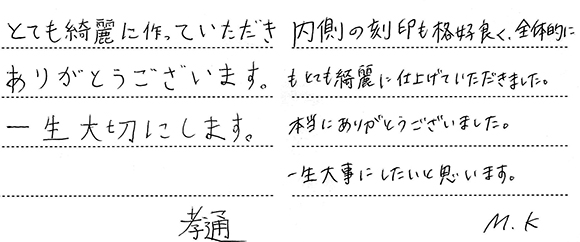 とても綺麗に作っていただき
ありがとうございます。
一生大切にします。
孝通
内側の刻印も格好良く、全体的に
もとても綺麗に仕上げていただきました。
本当にありがとうございました。
一生大事にしたいと思います。
M.K